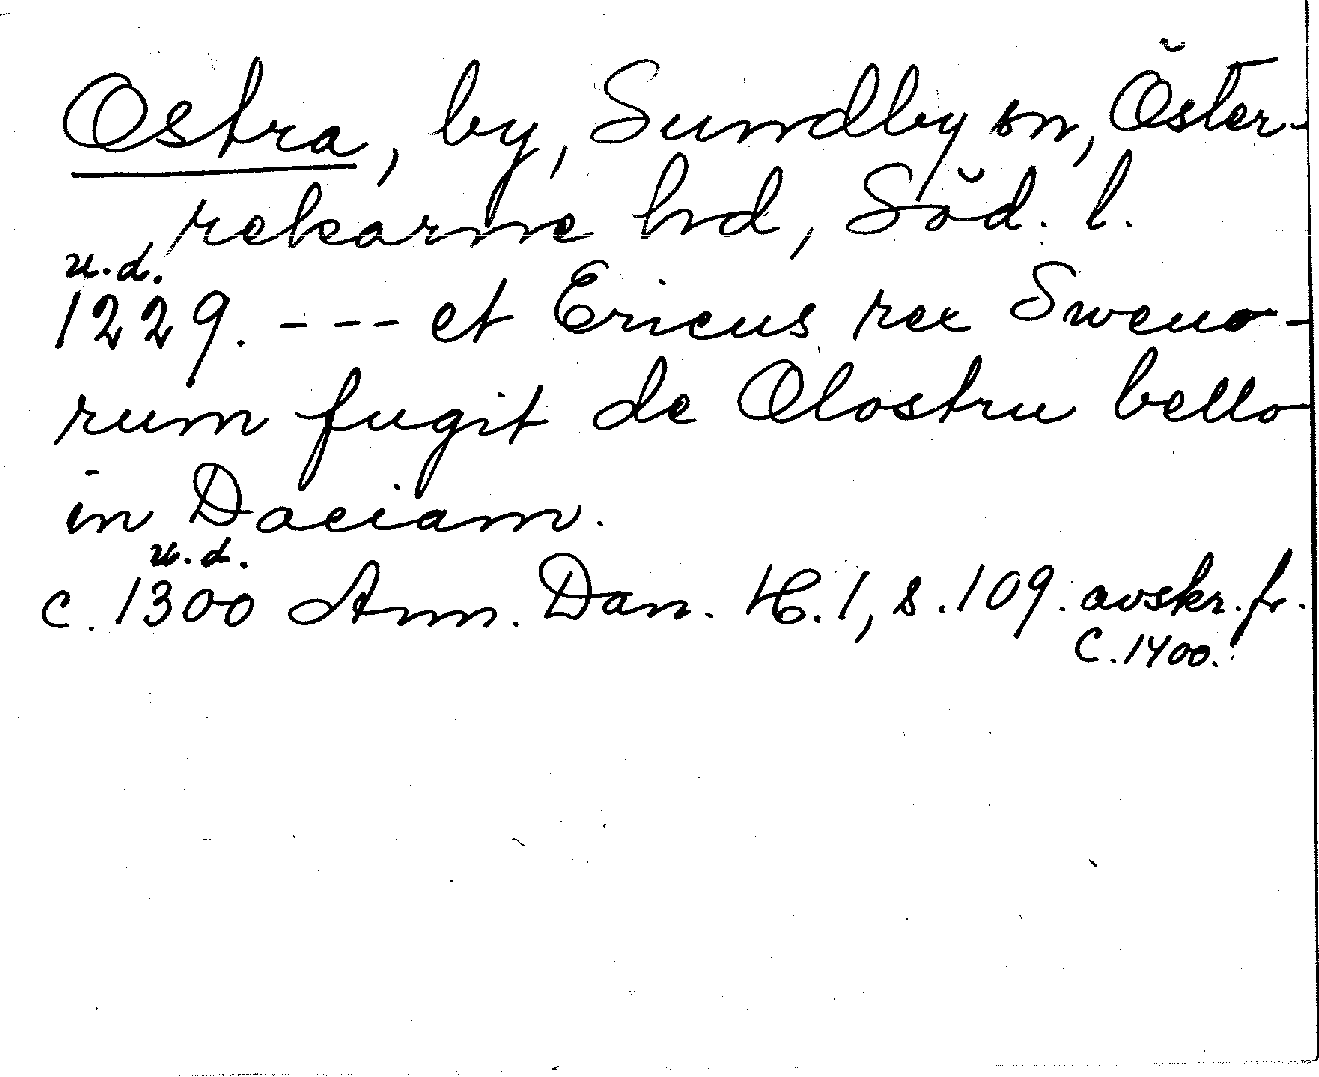 Ostra, by, Sundby sn, Öster-
rekarne hd, Söd. l.
u.d.
1229. --- et Ericus rex Sweuo-
rum fugit de Olostru bello
in Daciam.
u.d.
c. 1300 Ann. Dan. H. 1, s. 109. avskr. fr.
c. 1400.